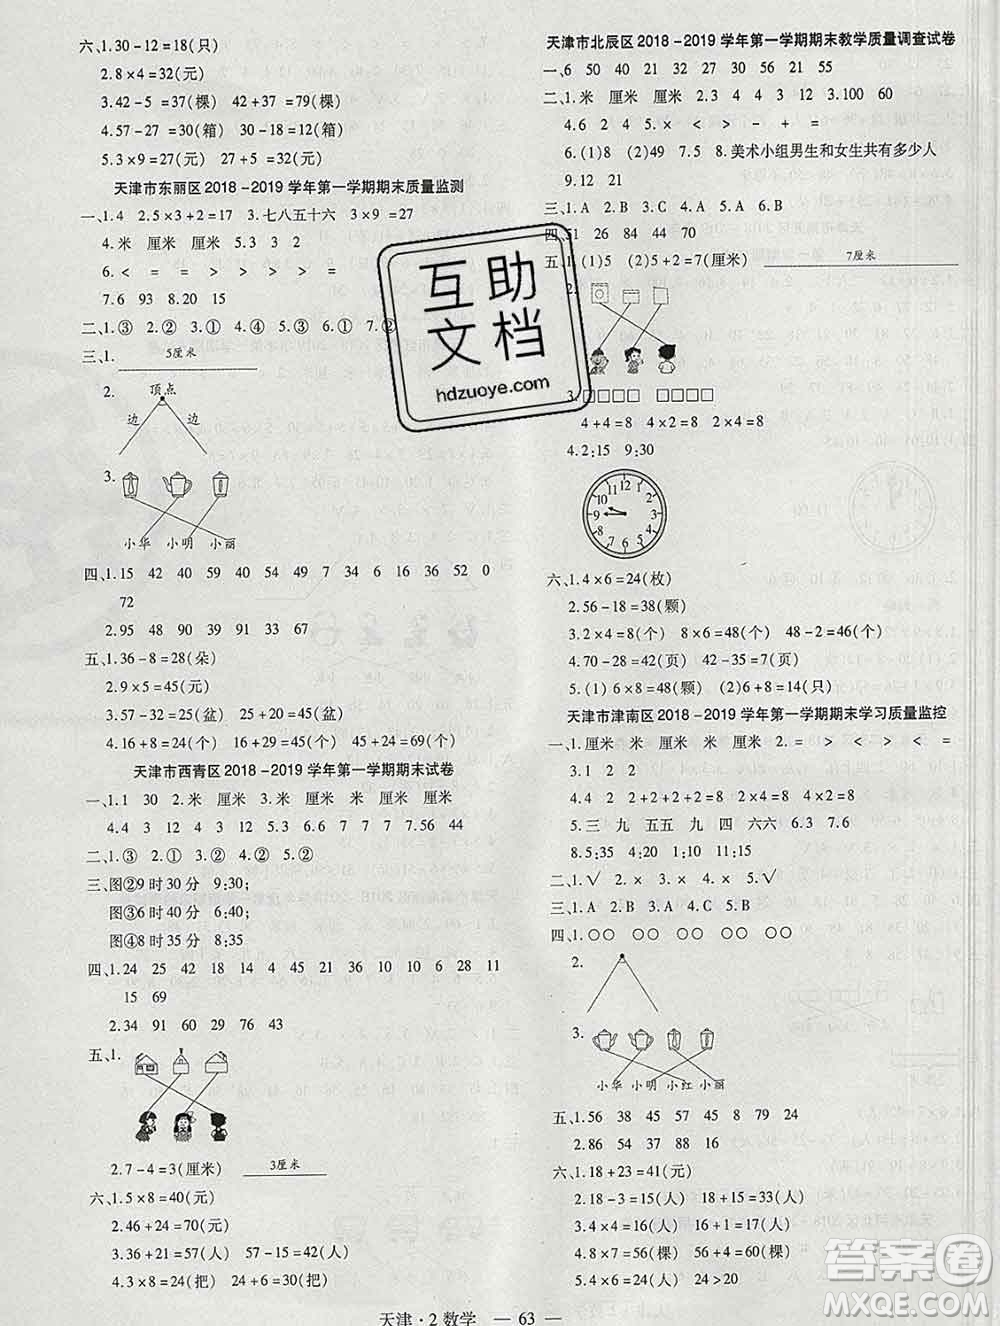 六、1.30-12=18(只)
2.8×4=32(元)
3.42-5=37(棵) 42+37=79(棵)
4.57-27=30(箱) 30-18=12(箱)
5.3×9=27(元) 27+5=32(元)
天津市东丽区2018-2019学年第一学期期末质量监测
一、1.4 2.5×3+2=17 3.七八五十六 3×9=27
4.米 厘米 厘米 5.3 3 2
6.< = = > = =
7.6 93 8.20 15
二、1.③ 2.② 3.① 4.③ 5.① 6.① 7.②
三、1. 5厘米
2. 顶点
边 边
3.
小华 小明 小丽
四、1.15 42 40 59 40 54 49 7 34 6 16 36 52 0
72
2.95 48 90 91 33 67
五、1.36-8=28(朵)
2.9×5=45(元)
3.57-32=25(盆) 25+20=45(盆)
4.16+8=24(元) 24+45=69(元)
天津市西青区2018-2019学年第一学期期末试卷
一、1.1 30 2.米 厘米 3.米 厘米 厘米 厘米 厘米
4.4 3 12 5.8 4 3 9 8 6.6 7 7 7 7.56 44
二、1.③ 2.① 3.② 4.② 5.②
三、图②9时30分 9:30;
图③6时40分 6:40;
图④8时35分 8:35
四、1.24 25 42 18 14 45 21 36 10 6 28 11
15 69
2.34 91 60 29 76 43
五、1.
2.7-4=3(厘米) 3厘米
六、1.5×8=40(元)
2.46+24=70(元)
3.36+21=57(元) 57-15=42(元)
4.3×8=24(把) 24+6=30(把)
天津市北辰区2018-2019学年第一学期期末教学质量调查试卷
一、6 50 40 21 27 30 30 56 21 55
二、1.米 厘米 厘米 2.3 4 4 3 12 3.100 60
4.6 42 5.× < > - + =
6.(1)8 (2)48 7.5 8.美术小组男生和女生共有多少人
9.12 21
三、1.A 2.B 3.C 4.C 5.A 6.B
四、51 26 84 44 70
五、1.(1)5 (2)5+2=7(厘米) 7厘米
2.
3.□□□□ □□□□
4+4=8 4×2=8 2×4=8
4.2:15 9:30
六、1.4×6=24(枚)
2.56-18=38(颗)
3.2×4=8(个) 8×6=48(个) 48-2=46(个)
4.70-28=42(页) 42-6=36(页)
5.(1)6×8=48(元) (2)6+8=14(只)
天津市津南区2018-2019学年第一学期期末学习质量监控
一、1.厘米 厘米 米 厘米 2.= > < > <
3.1 2 12
4.4 2 2+2+2+2=8 2×4=8
5.三 九 五五 九 四 六六 6.3 7.6
8.5:35 4:20 1:05 11:15
二、1.√ 2.× 3.× 4.× 5.√
三、1.A 2.A 3.B 4.C 5.B
四、1.○○ ○○ ○○ ○○
2.
3.
小华 小明 小红 小丽
五、1.56 38 45 57 45 8 79 24
2.86 54 40 48 48 67
六、1.18+23=41(元)
2.18-3=15(人) 18+15=33(人)
3.4×4=16(人) 16+1=17(人)
4.8×7=56(棵) 56+4=60(棵)
5.4×6=24(元) 24-22=2(元)
天津·2数学 — 63 —
互助
文档
hdzuoye.com
答案圈
MXQE.COM